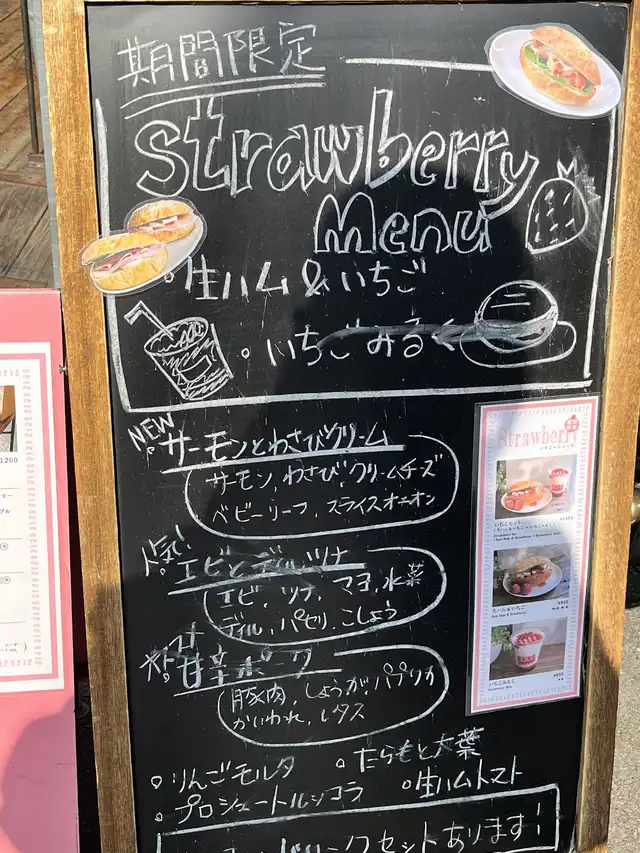 期間限定
Strawberry
Menu
生ハム&いちご
いちごみるく
NEW
サーモンとわさびクリーム
サーモン、わさび、クリームチーズ
ベビーリーフ、スライスオニオン
人気!
エビとディルツナ
エビ、ツナ、マヨ、水菜
ディル、パセリ、こしょう
甘辛ポーク
豚肉、しょうが、パプリカ
かいわれ、レタス
りんごモルタ
たらもと大葉
プロシュートルッコラ
生ハムトマト
セットあります!
Strawberry
いちごセット
生ハム&いちご
¥850
いちごみるく